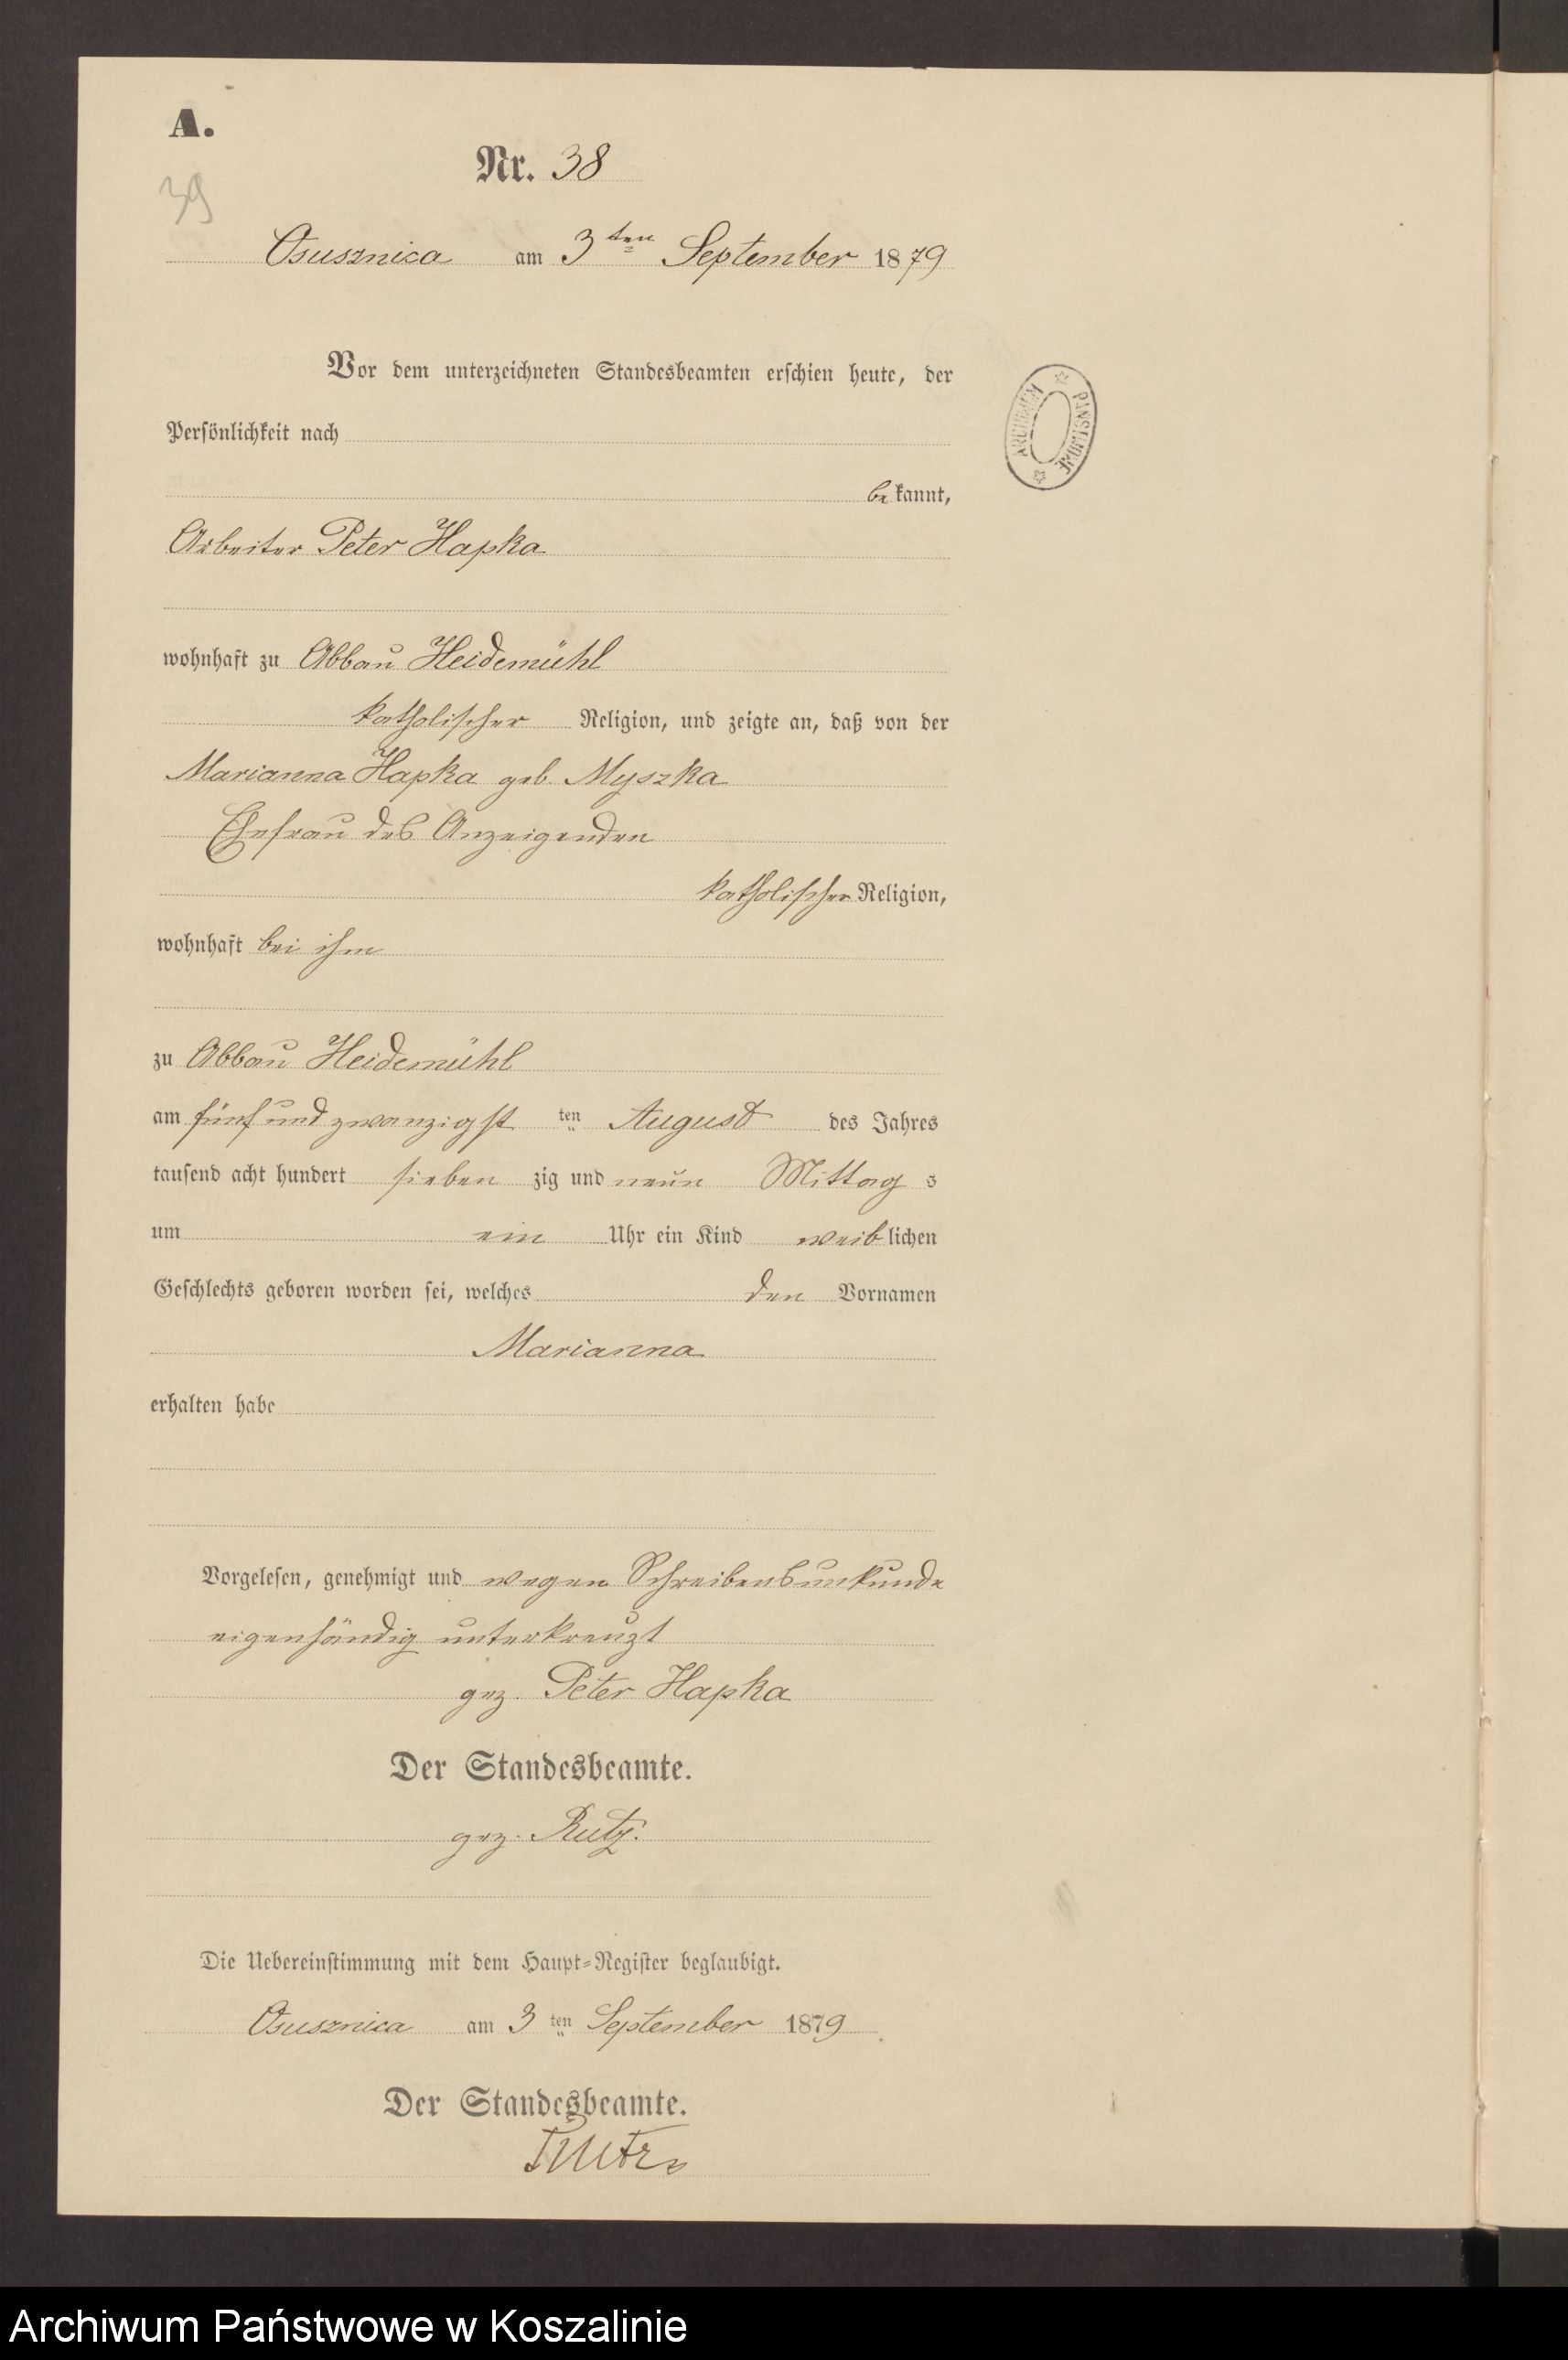 A.
Nr. 38
39
Osusznica am 3ten September 1879
Vor dem unterzeichneten Standesbeamten erschien heute, der
Persönlichkeit nach
bekannt,
Arbeiter Peter Hapka
wohnhaft zu Abbau Heidemühl
katholischer Religion, und zeigte an, daß von der
Marianna Hapka geb. Myszka
Ehefrau des Anzeigenden
katholischer Religion,
wohnhaft bei ihm
zu Abbau Heidemühl
am fünf und zwanzigst ten August des Jahres
tausend acht hundert sieben zig und neun Mittag s
um ein Uhr ein Kind weiblichen
Geschlechts geboren worden sei, welches den Vornamen
Marianna
erhalten habe
Vorgelesen, genehmigt und wegen Schreibensunkunde
eigenhändig unterkreuzt
gez. Peter Hapka
Der Standesbeamte.
gez. Rutz.
Die Uebereinstimmung mit dem Haupt=Register beglaubigt.
Osusznica am 3 ten September 1879
Der Standesbeamte.
Rutz
ARCHIWUM PAŃSTWOWE
Archiwum Państwowe w Koszalinie